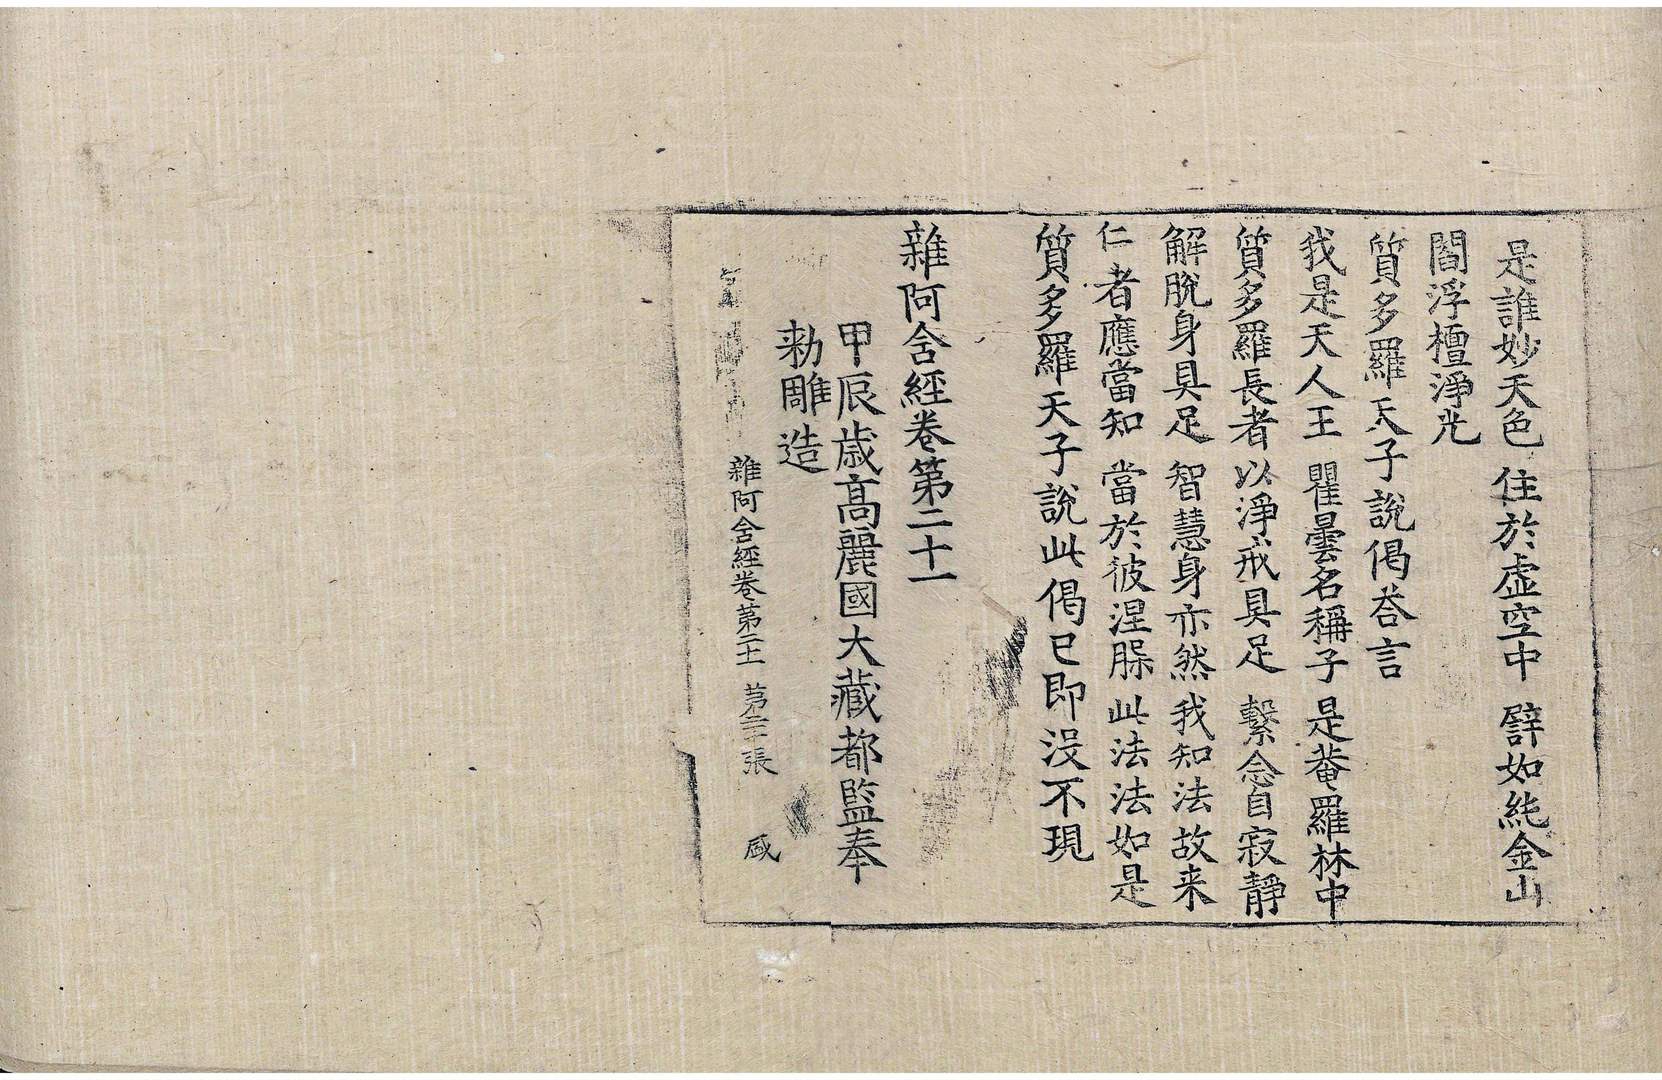 是誰妙天色 住於虛空中 譬如純金山
閻浮檀淨光
質多羅天子說偈荅言
我是天人王 瞿曇名稱子 是菴羅林中
質多羅長者 以淨戒具足 繫念自寂靜
解脫身具足 智慧身亦然 我知法故来
仁者應當知 當於彼涅槃 此法法如是
質多羅天子說此偈已即没不現
雜阿含經卷第二十一
甲辰歳高麗國大藏都監奉
勑雕造
雜阿含經卷第二十一 第二十張 盛